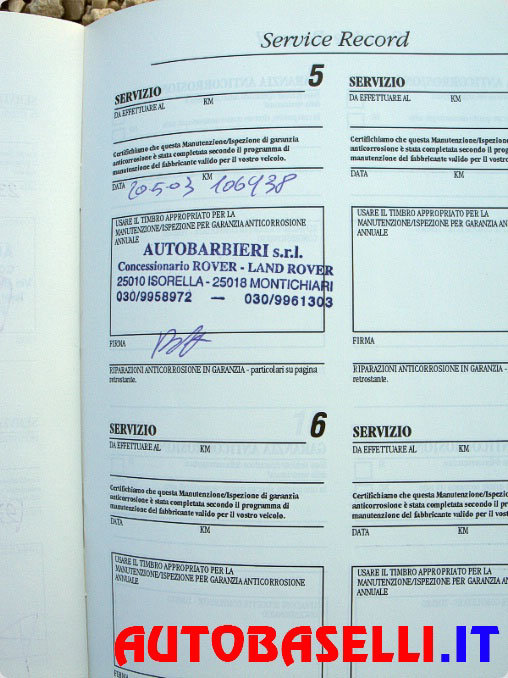 Service Record
SERVIZIO 5
DA EFFETTUARE AL KM
Certifichiamo che questa Manutenzione/Ispezione di garanzia
anticorrosione è stata completata secondo il programma di
manutenzione del fabbricante valido per il vostro veicolo.
DATA 20.5.03 KM 106438
USARE IL TIMBRO APPROPRIATO PER LA
MANUTENZIONE/ISPEZIONE PER GARANZIA ANTICORROSIONE
ANNUALE
AUTOBARBIERI s.r.l.
Concessionario ROVER - LAND ROVER
25010 ISORELLA - 25018 MONTICHIARI
030/9958972 — 030/9961303
FIRMA
RIPARAZIONI ANTICORROSIONE IN GARANZIA - particolari su pagina
retrostante.
SERVIZIO 6
DA EFFETTUARE AL KM
Certifichiamo che questa Manutenzione/Ispezione di garanzia
anticorrosione è stata completata secondo il programma di
manutenzione del fabbricante valido per il vostro veicolo.
DATA KM
USARE IL TIMBRO APPROPRIATO PER LA
MANUTENZIONE/ISPEZIONE PER GARANZIA ANTICORROSIONE
ANNUALE
FIRMA
SERVIZIO
DA EFFETTUARE AL KM
Certifichiamo che questa Manutenzione/Ispezi
anticorrosione è stata completata secondo il p
manutenzione del fabbricante valido per il vostro
DATA KM
USARE IL TIMBRO APPROPRIATO PER LA
MANUTENZIONE/ISPEZIONE PER GARANZ
ANNUALE
FIRMA
RIPARAZIONI ANTICORROSIONE IN GARANZIA -
retrostante.
SERVIZIO
DA EFFETTUARE AL KM
Certifichiamo che questa Manutenzione/Ispezi
anticorrosione è stata completata secondo il p
manutenzione del fabbricante valido per il vost
DATA KM
USARE IL TIMBRO APPROPRIATO PER LA
MANUTENZIONE/ISPEZIONE PER GARANZ
ANNUALE
AUTOBASELLI.IT